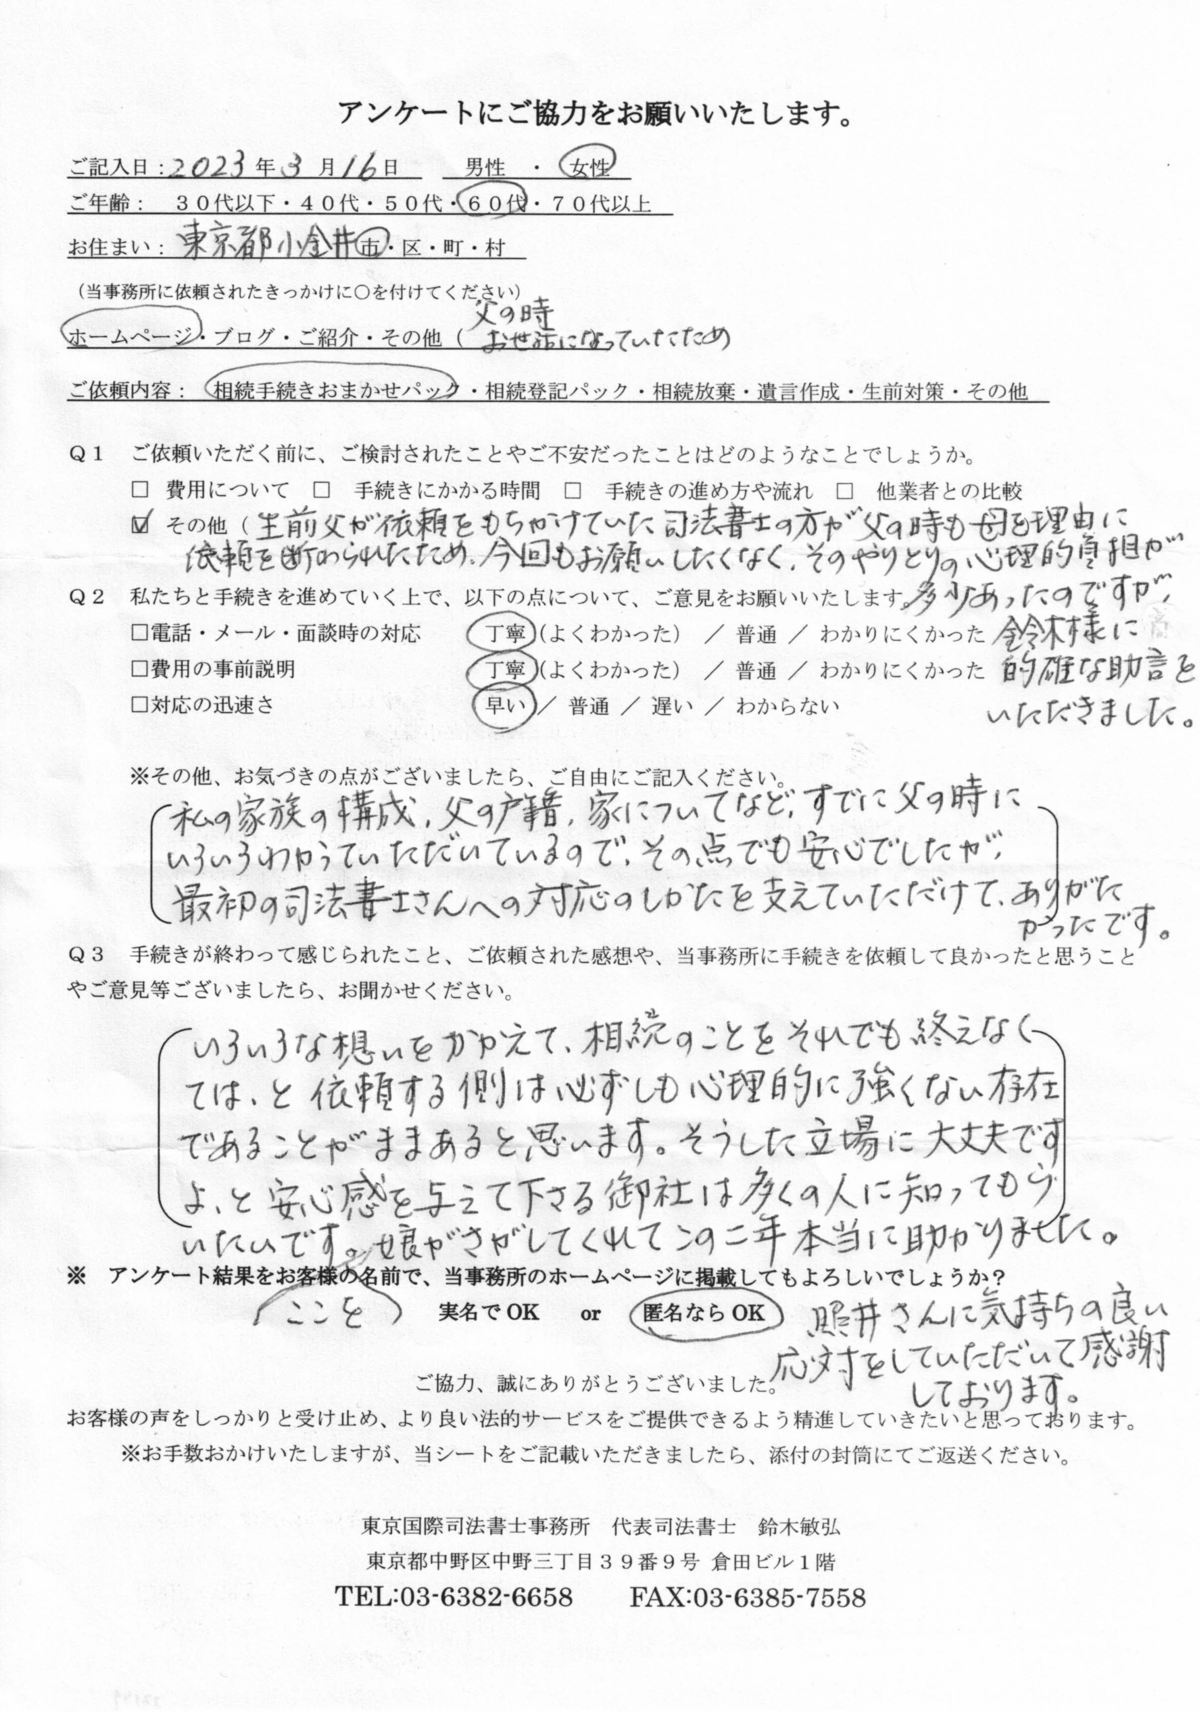 アンケートにご協力をお願いいたします。
ご記入日：2023年3月16日　男性　・　女性
ご年齢：　３０代以下・４０代・５０代・６０代・７０代以上
お住まい：東京都小金井市・区・町・村
（当事務所に依頼されたきっかけに○を付けてください）
父の時
ホームページ・ブログ・ご紹介・その他（お世話になっていたため
ご依頼内容：　相続手続きおまかせパック・相続登記パック・相続放棄・遺言作成・生前対策・その他
Ｑ１　ご依頼いただく前に、ご検討されたことやご不安だったことはどのようなことでしょうか。
□　費用について　□　手続きにかかる時間　□　手続きの進め方や流れ　□　他業者との比較
☑　その他（生前父が依頼をもちかけていた司法書士の方が父の時も母を理由に
依頼を断わられたため、今回もお願いしたくなく、そのやりとりの心理的負担が
Ｑ２　私たちと手続きを進めていく上で、以下の点について、ご意見をお願いいたします。多少あったのですが、
□電話・メール・面談時の対応　丁寧（よくわかった）　／　普通　／　わかりにくかった　鈴木様に
□費用の事前説明　丁寧（よくわかった）　／　普通　／　わかりにくかった　的確な助言を
□対応の迅速さ　早い　／　普通　／　遅い　／　わからない　いただきました。
※その他、お気づきの点がございましたら、ご自由にご記入ください。
私の家族の構成、父の戸籍、家についてなど、すでに父の時に
いろいろわかっていただいているので、その点でも安心でしたが、
最初の司法書士さんへの対応のしかたを支えていただけて、ありがた
かったです。
Ｑ３　手続きが終わって感じられたこと、ご依頼された感想や、当事務所に手続きを依頼して良かったと思うこと
やご意見等ございましたら、お聞かせください。
いろいろな想いをかかえて、相続のことをそれでも終えなく
ては、と依頼する側は必ずしも心理的に強くない存在
であることがままあると思います。そうした立場に大丈夫です
よ、と安心感を与えて下さる御社は多くの人に知ってもら
いたいです。娘がさがしてくれてこの二年本当に助かりました。
※　アンケート結果をお客様の名前で、当事務所のホームページに掲載してもよろしいでしょうか？
（ことを）　実名でOK　or　匿名ならOK　照井さんに気持ちの良い
応対をしていただいて感謝
しております。
ご協力、誠にありがとうございました。
お客様の声をしっかりと受け止め、より良い法的サービスをご提供できるよう精進していきたいと思っております。
※お手数おかけいたしますが、当シートをご記載いただきましたら、添付の封筒にてご返送ください。
東京国際司法書士事務所　代表司法書士　鈴木敏弘
東京都中野区中野三丁目３９番９号 倉田ビル１階
TEL:03-6382-6658　FAX:03-6385-7558